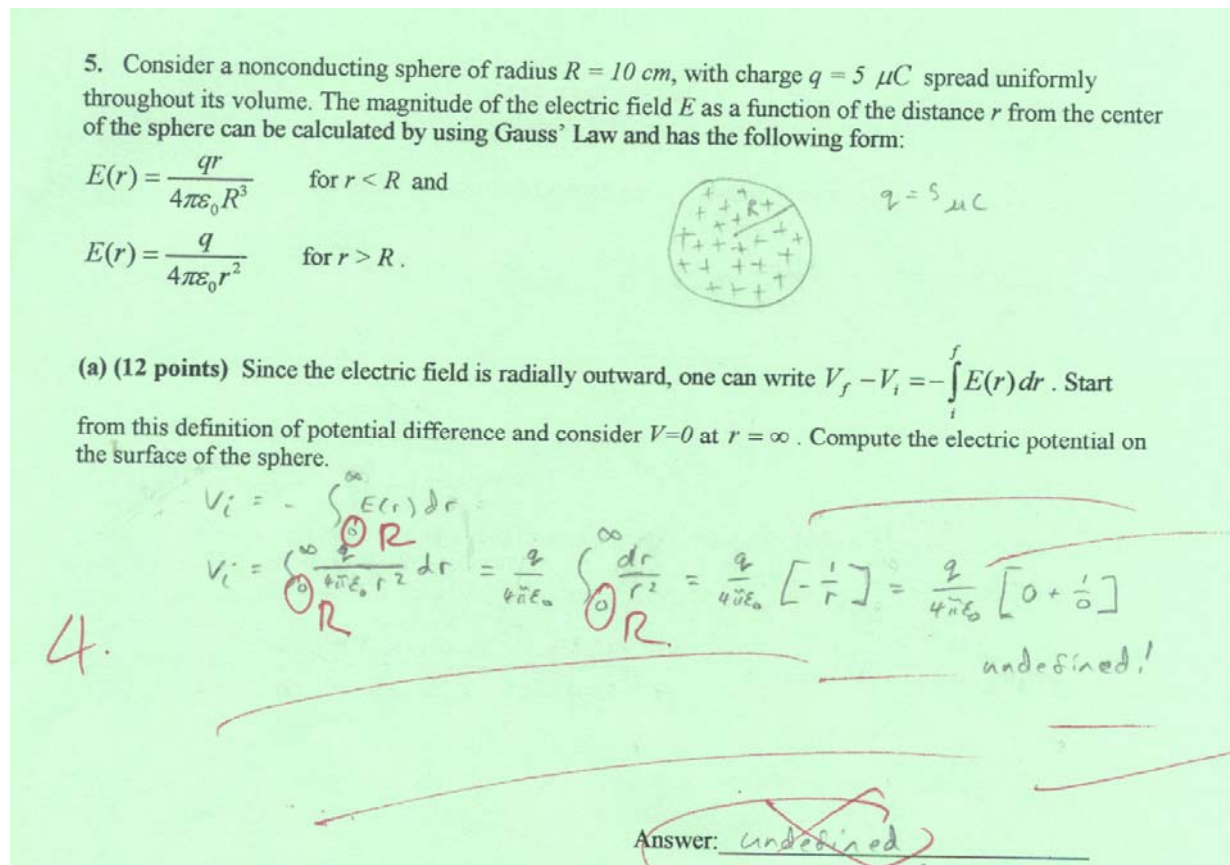 5. Consider a nonconducting sphere of radius R = 10 cm, with charge q = 5 μC spread uniformly
throughout its volume. The magnitude of the electric field E as a function of the distance r from the center
of the sphere can be calculated by using Gauss' Law and has the following form:
E(r) = qr / 4πε₀R³ for r < R and
R
q = 5 μC
E(r) = q / 4πε₀r² for r > R.
(a) (12 points) Since the electric field is radially outward, one can write V_f − V_i = −∫_i^f E(r) dr. Start
from this definition of potential difference and consider V=0 at r = ∞. Compute the electric potential on
the surface of the sphere.
V_i = - ∫_0^∞ E(r) dr
R
V_i = ∫_0^∞ q / 4πε₀r² dr = q / 4πε₀ ∫_0^∞ dr / r² = q / 4πε₀ [-1/r] = q / 4πε₀ [0 + 1/0]
R R
4.
undefined!
Answer: undefined